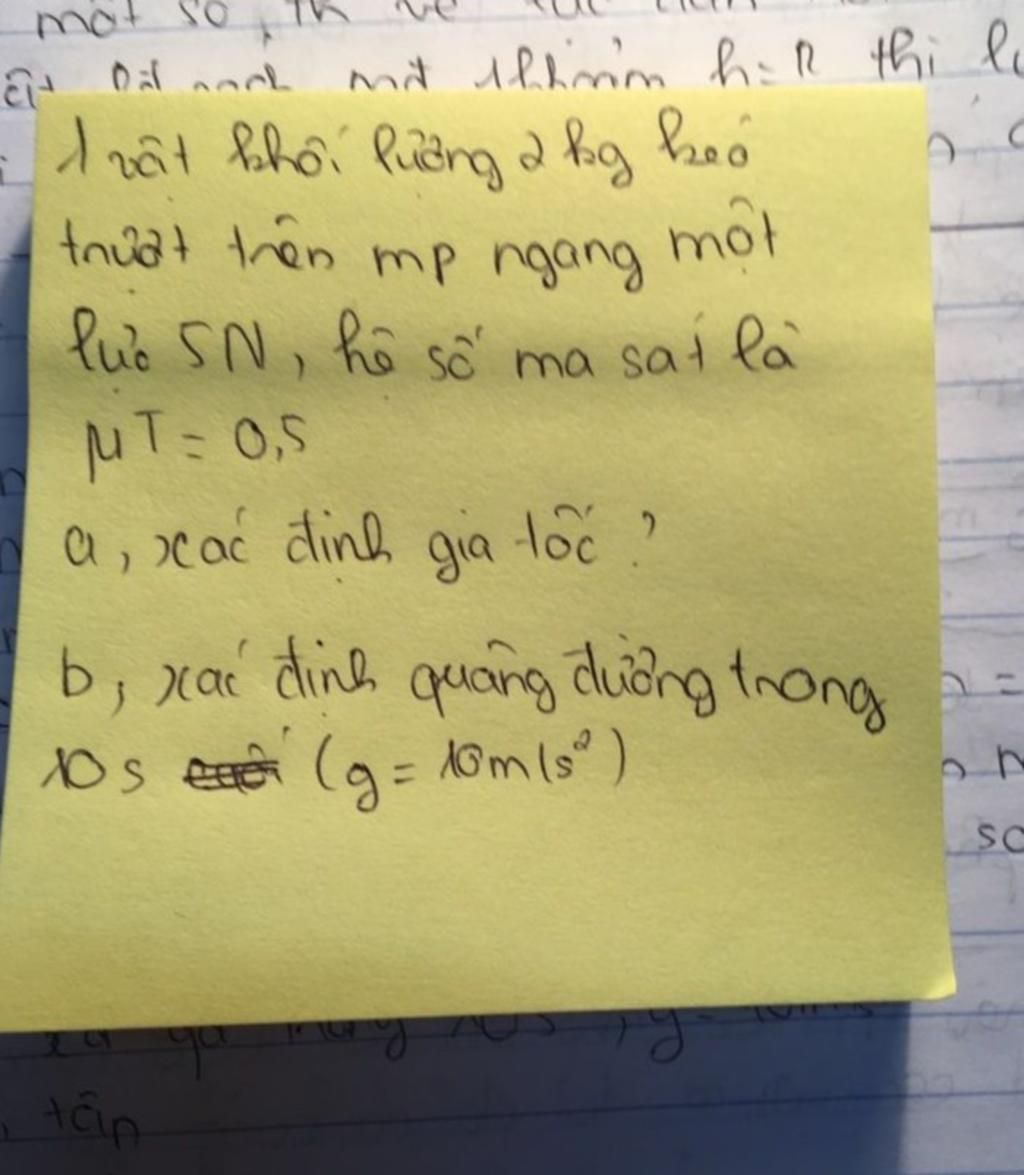 một số
h = R thì
1 vật khối lượng 2 kg kéo
trượt trên mp ngang một
lực 5N, hệ số ma sát là
μT = 0,5
a, xác định gia tốc ?
b, xác định quãng đường trong
10s (g = 10m/s²)